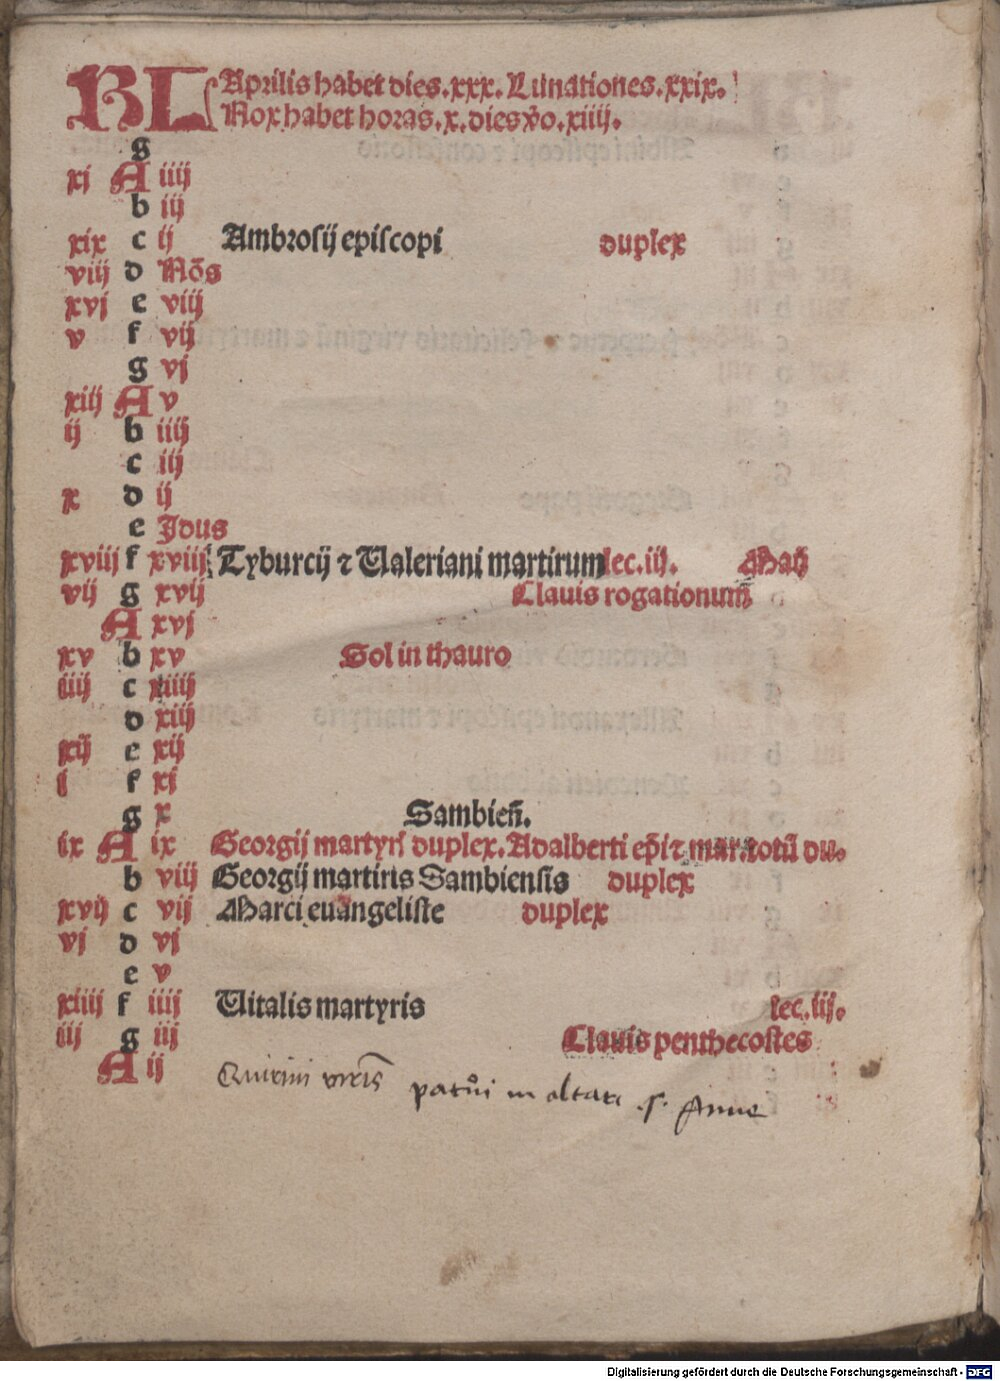 KL Aprilis habet dies.xxx. Lunationes.xxix.
Nox habet horas.x.dies v̄o.xiiij.
g
xj A iiij
b iij
xix c ij Ambrosij episcopi duplex
viij d Nōs
xvj e viij
v f vij
g vj
xiij A v
ij b iiij
c iij
x d ij
e Jdus
xviij f xviij Tyburcij ⁊ Ualeriani martirum lec.iij.
vij g xvij Clauis rogationum
A xvj
xv b xv Sol in thauro
iiij c xiiij
d xiij
xij e xij
j f xj
g x Sambieñ.
ix A ix Georgij martyrꝭ duplex. Adalberti ep̄i ⁊ mar. totū du.
b viij Georgij martiris Sambiensis duplex
xvij c vij Marci euangeliste duplex
vj d vj
e v
xiiij f iiij Uitalis martyris lec.iij.
iij g iij Clauis penthecostes
A ij Quirini in altari .s. Anne
Digitalisierung gefördert durch die Deutsche Forschungsgemeinschaft - DFG